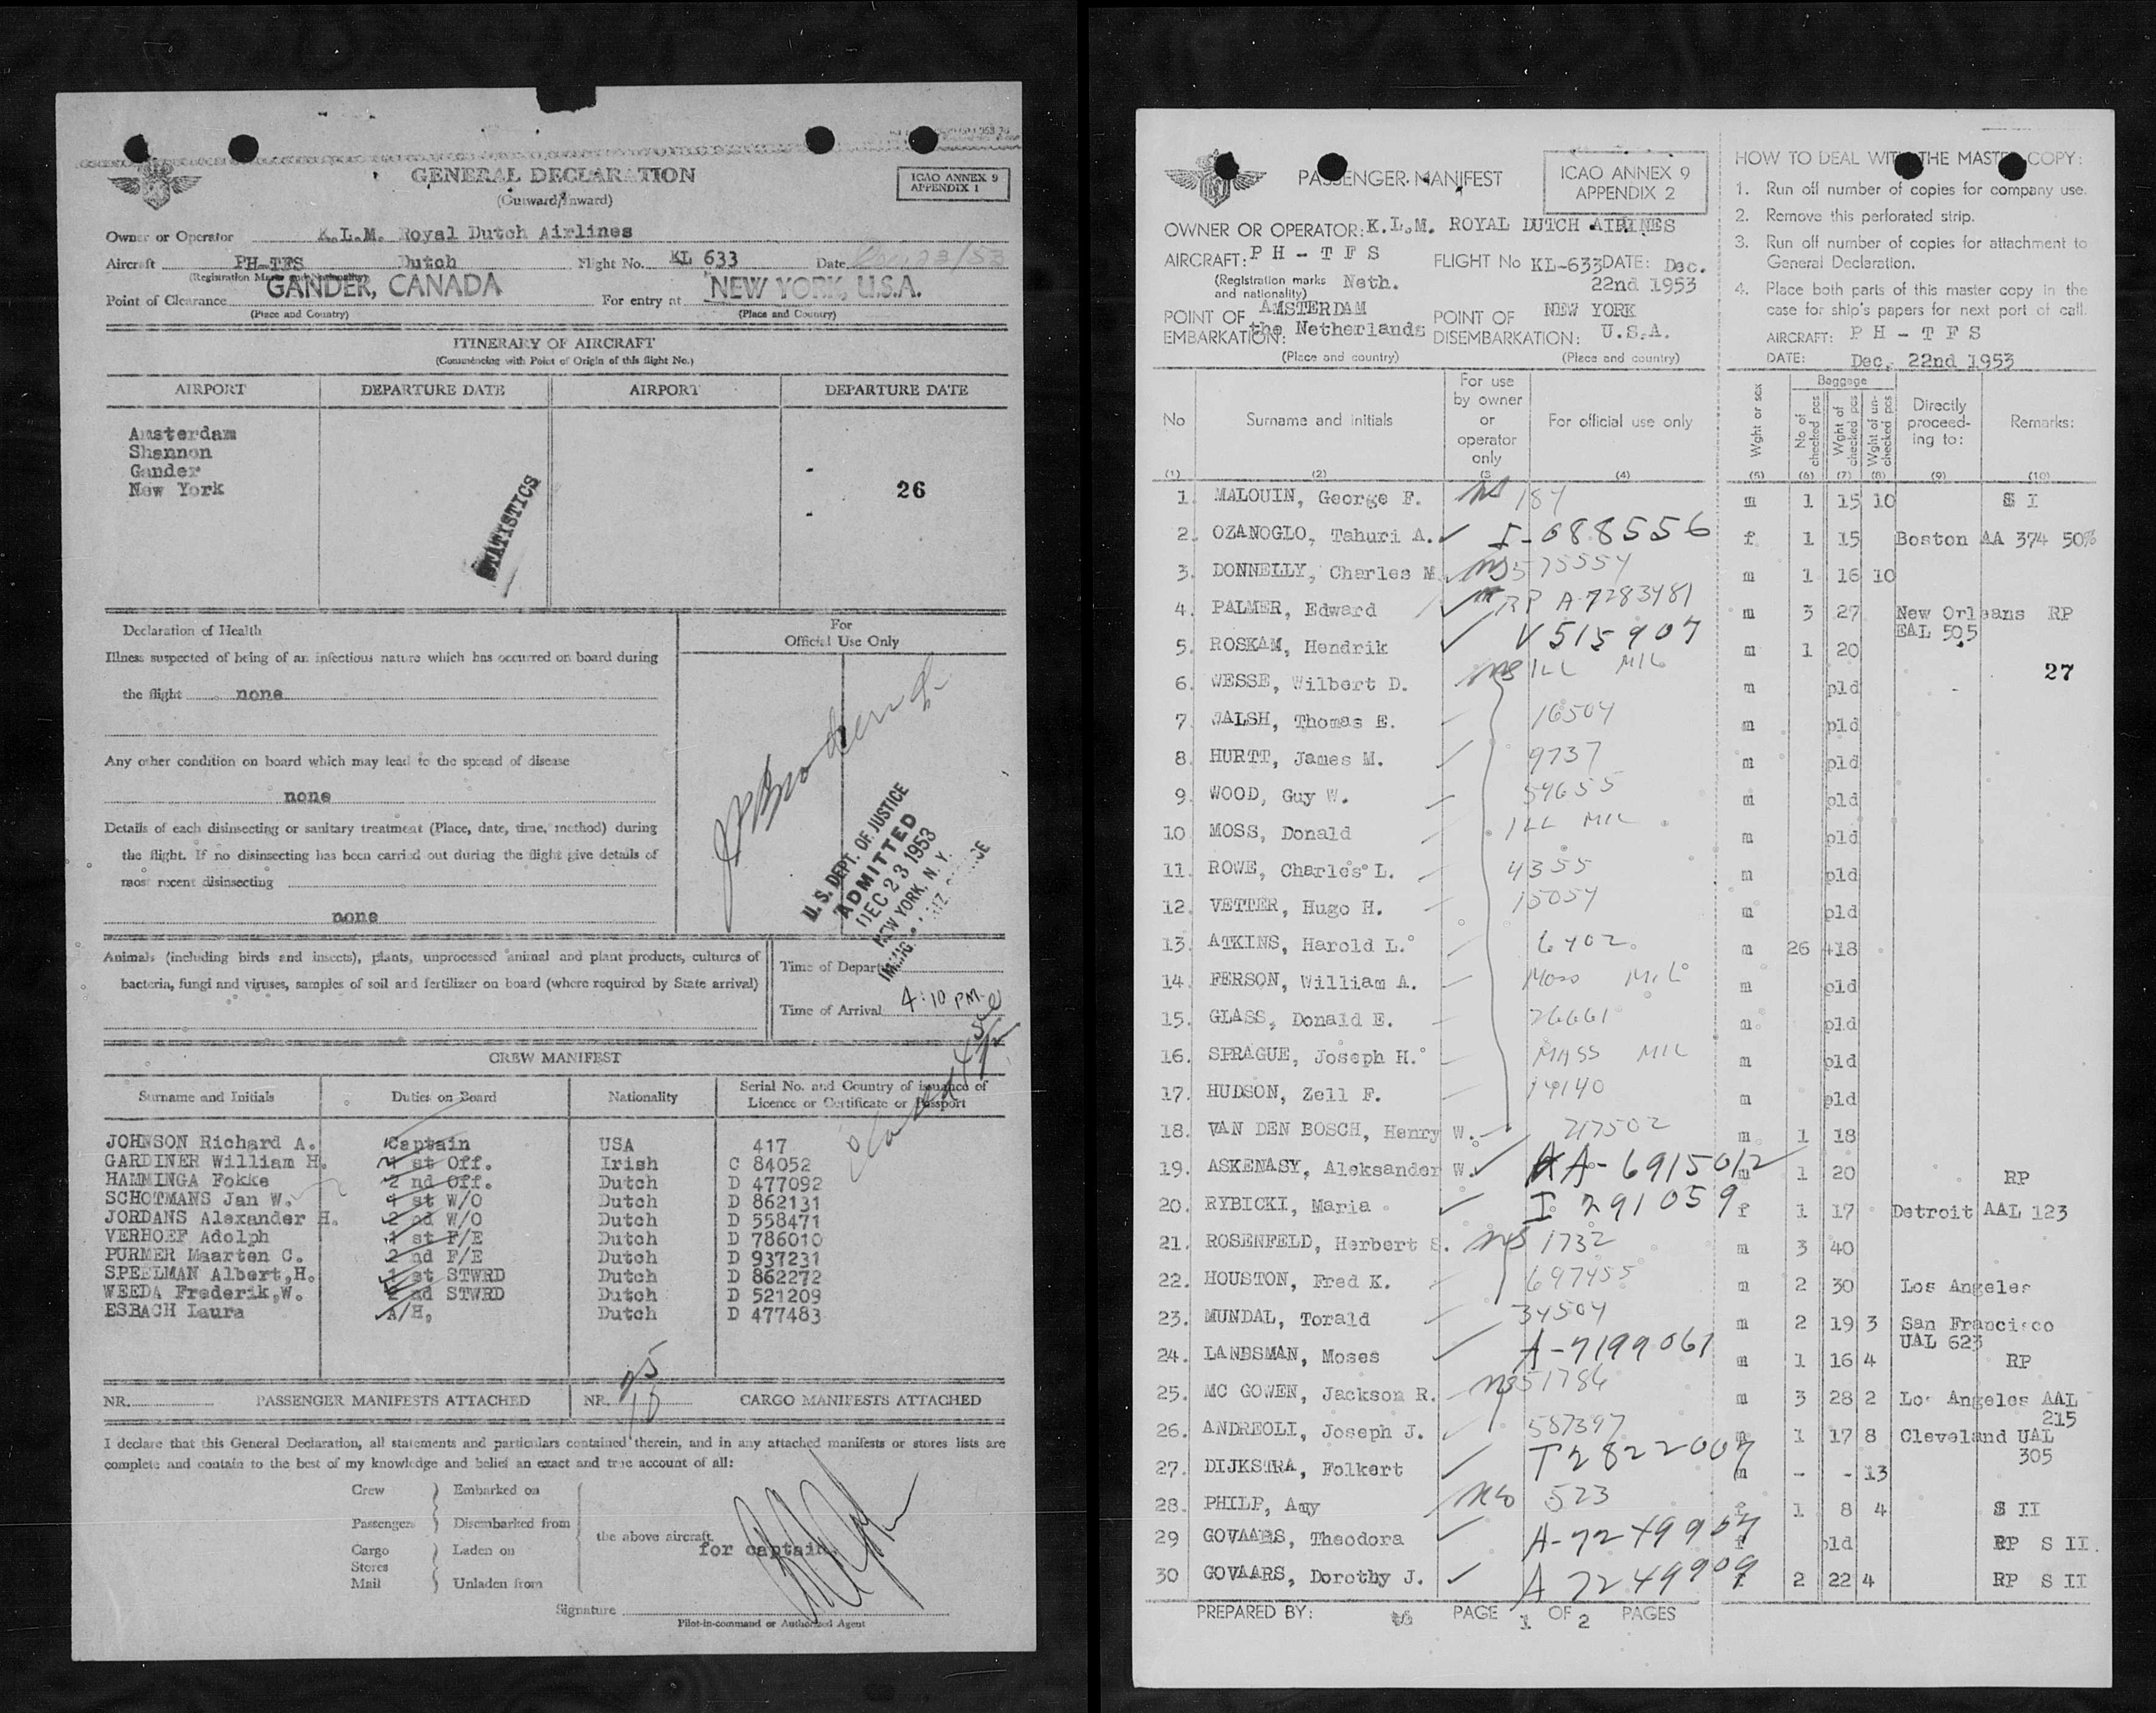 GENERAL DECLARATION
(Outward/Inward)
ICAO ANNEX 9
APPENDIX 1
Owner or Operator K.L.M. Royal Dutch Airlines
Aircraft PH-TFS Dutch Flight No. KL 633 Date Dec 23/53
(Registration Marks and Nationality)
Point of Clearance GANDER, CANADA For entry at NEW YORK, U.S.A.
(Place and Country) (Place and Country)
ITINERARY OF AIRCRAFT
(Commencing with Point of Origin of this flight No.)
AIRPORT DEPARTURE DATE AIRPORT DEPARTURE DATE
Amsterdam
Shannon
Gander
New York
26
STATISTICS
Declaration of Health
For
Official Use Only
Illness suspected of being of an infectious nature which has occurred on board during
the flight none
Any other condition on board which may lead to the spread of disease
none
Details of each disinsecting or sanitary treatment (Place, date, time, method) during
the flight. If no disinsecting has been carried out during the flight give details of
most recent disinsecting
none
U. S. DEPT. OF JUSTICE
ADMITTED
DEC 23 1953
NEW YORK, N. Y.
Animals (including birds and insects), plants, unprocessed animal and plant products, cultures of
bacteria, fungi and viruses, samples of soil and fertilizer on board (where required by State arrival)
Time of Departure
Time of Arrival 4:10 PM
CREW MANIFEST
Surname and Initials Duties on Board Nationality Serial No. and Country of issuance of
Licence or Certificate or Passport
JOHNSON Richard A. Captain USA 417
GARDINER William H. 1 st Off. Irish C 84052
HAMMINGA Fokke 2 nd Off. Dutch D 477092
SCHOTMANS Jan W. 1 st W/O Dutch D 862131
JORDANS Alexander H. 2 nd W/O Dutch D 558471
VERHOEF Adolph 1 st F/E Dutch D 786010
PURMER Maarten C. 2 nd F/E Dutch D 937231
SPEELMAN Albert,H. 1 st STWRD Dutch D 862272
WEEDA Frederik,W. 2 nd STWRD Dutch D 521209
ESBACH Laura A/H, Dutch D 477483
NR. PASSENGER MANIFESTS ATTACHED NR. CARGO MANIFESTS ATTACHED
I declare that this General Declaration, all statements and particulars contained therein, and in any attached manifests or stores lists are
complete and contain to the best of my knowledge and belief an exact and true account of all:
Crew Embarked on
Passengers Disembarked from
the above aircraft.
for captain
Cargo Laden on
Stores
Mail Unladen from
Signature
Pilot-in-command or Authorized Agent
PASSENGER MANIFEST
ICAO ANNEX 9
APPENDIX 2
OWNER OR OPERATOR: K.L.M. ROYAL DUTCH AIRLINES
AIRCRAFT: P H - T F S FLIGHT No KL-633 DATE: Dec.
22nd 1953
(Registration marks and nationality) Neth.
POINT OF EMBARKATION: AMSTERDAM the Netherlands POINT OF DISEMBARKATION: NEW YORK U.S.A.
(Place and country) (Place and country)
HOW TO DEAL WITH THE MASTER COPY:
1. Run off number of copies for company use.
2. Remove this perforated strip.
3. Run off number of copies for attachment to
General Declaration.
4. Place both parts of this master copy in the
case for ship's papers for next port of call.
AIRCRAFT: P H - T F S
DATE: Dec. 22nd 1953
No Surname and initials For use by owner or operator only For official use only Wght or sex Baggage No of checked pcs Wght of checked pcs Wght of un-checked pcs Directly proceed-ing to: Remarks:
(1) (2) (3 (4) (5) (6) (7) (8) (9) (10)
1. MALOUIN, George F. 187 m 1 15 10 S I
2. OZANOGLO, Tahuri A. I-688556 f 1 15 Boston AA 374 50%
3. DONNELLY, Charles M. 575554 m 1 16 10
4. PALMER, Edward RP A-7283481 m 3 27 New Orleans RP
EAL 505
5. ROSKAM, Hendrik V 515907 m 1 20
27
6. WESSE, Wilbert D. ILL MIL m pld
7. WALSH, Thomas E. 16504 m pld
8. HURTT, James M. 9737 m pld
9. WOOD, Guy W. 59655 m pld
10. MOSS, Donald ILL MIL m pld
11. ROWE, Charles L. 4355 m pld
12. VETTER, Hugo H. 15054 m pld
13. ATKINS, Harold L. 6402 m 26 418
14. FERSON, William A. MIL m pld
15. GLASS, Donald E. 26661 m pld
16. SPRAGUE, Joseph H. MASS MIL m pld
17. HUDSON, Zell F. 14140 m pld
18. VAN DEN BOSCH, Henry W. 217502 m 1 18
19. ASKENASY, Aleksander W. A-6915012 m 1 20 RP
20. RYBICKI, Maria I 291059 f 1 17 Detroit AAL 123
21. ROSENFELD, Herbert S. 1732 m 3 40
22. HOUSTON, Fred K. 697455 m 2 30 Los Angeles
23. MUNDAL, Torald 34504 m 2 19 3 San Francisco
UAL 623
24. LANDSMAN, Moses A-7199061 m 1 16 4 RP
25. MC GOWEN, Jackson R. 51786 m 3 28 2 Los Angeles AAL
215
26. ANDREOLI, Joseph J. 587397 m 1 17 8 Cleveland UAL
305
27. DIJKSTRA, Folkert T2822007 m - - 13
28. PHILP, Amy 523 f 1 8 4 S II
29 GOVAARS, Theodora A-7249907 f pld RP S II.
30 GOVAARS, Dorothy J. A 7249909 f 2 22 4 RP S II
PREPARED BY: PAGE 1 OF 2 PAGES